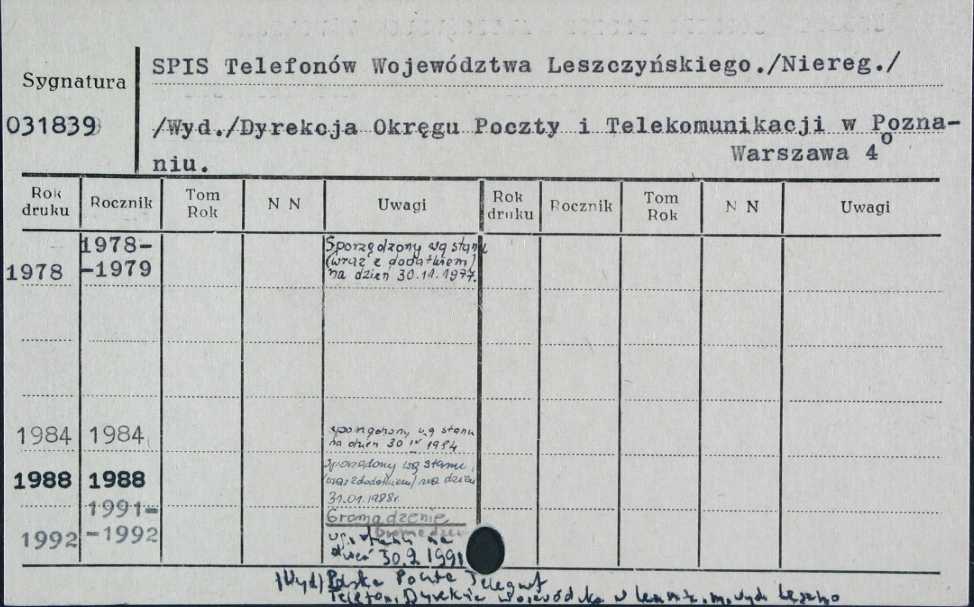 SPIS Telefonów Województwa Leszczyńskiego./Niereg./
Sygnatura
031839
/Wyd./Dyrekcja Okręgu Poczty i Telekomunikacji w Pozna-
niu.
Warszawa 4°
Rok druku Rocznik Tom Rok N N Uwagi Rok druku Rocznik Tom Rok N N Uwagi
1978 1978-
-1979
Sporządzony wg stanu
(wraz z dodatkiem)
na dzień 30.11.1977.
1984 1984
sporządzony wg stanu
na dzień 30 IV 1984
1988 1988
sporządzony wg stanu
(wraz z dodatkiem) na dzień
31.01.1988r
1992 1991-
-1992
Gromadzenie
wg. stanu na
dzień 30.9.1991
/Wyd/ Polska Poczta Telegraf
Telefon, Dyrekcja Wojewódzka w